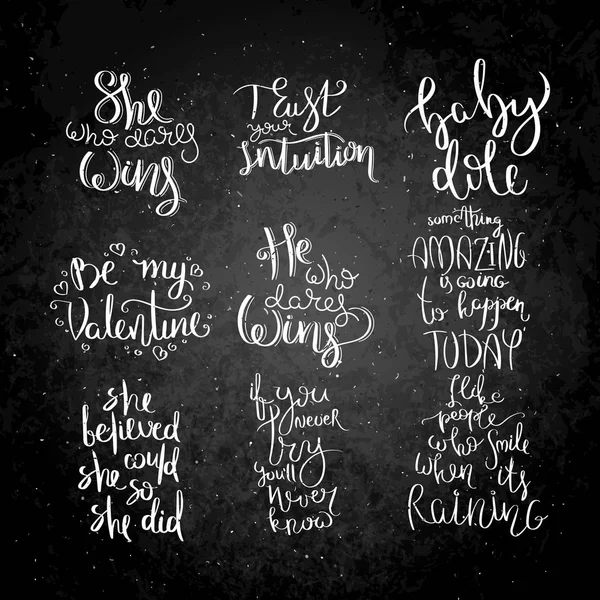 She
who dares
Wins
Trust
your
intuition
baby
dole
Be my
Valentine
He
who
dares
Wins
something
AMAZING
is going
to happen
TODAY
she
believed
could
she so
she did
if you
never
try
you'll
never
know
I like
people
who smile
when its
Raining